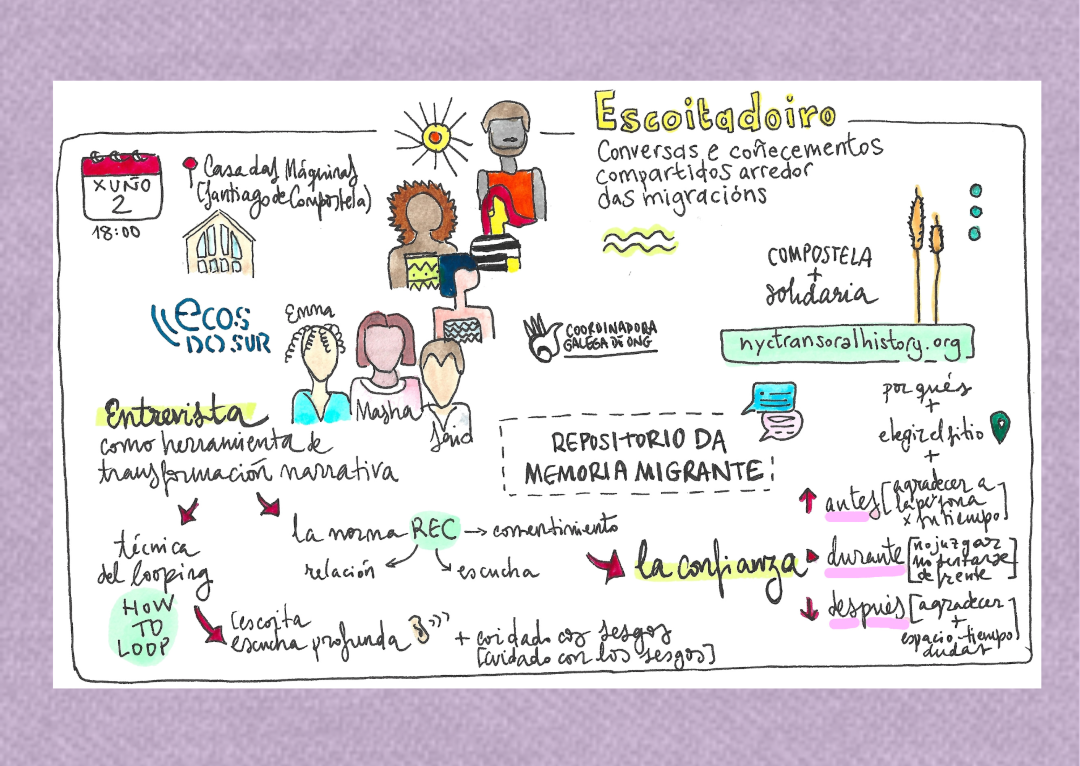 Escoitadoiro
Conversas e coñecementos
compartidos arredor
das migracións
XUÑO
2
18:00
Casa das Máquinas
(Santiago de Compostela)
ecos
DO SUR
Emma
Masha
COORDINADORA
GALEGA DE ONG
COMPOSTELA
+
solidaria
nyctransoralhistory.org
Entrevista
como herramienta de
transformación narrativa
REPOSITORIO DA
MEMORIA MIGRANTE
por qués
+
elegir el sitio
+
antes [agradecer a
la persona
x su tiempo]
durante [no juzgar
no sentarse
de frente]
después [agradecer
+
espacio-tiempo
dudas]
técnica
del looping
HOW
TO
LOOP
la norma REC → consentimiento
relación
escucha
la confianza
escoita
escucha profunda
+ coidado cos sesgos
[cuidado con los sesgos]